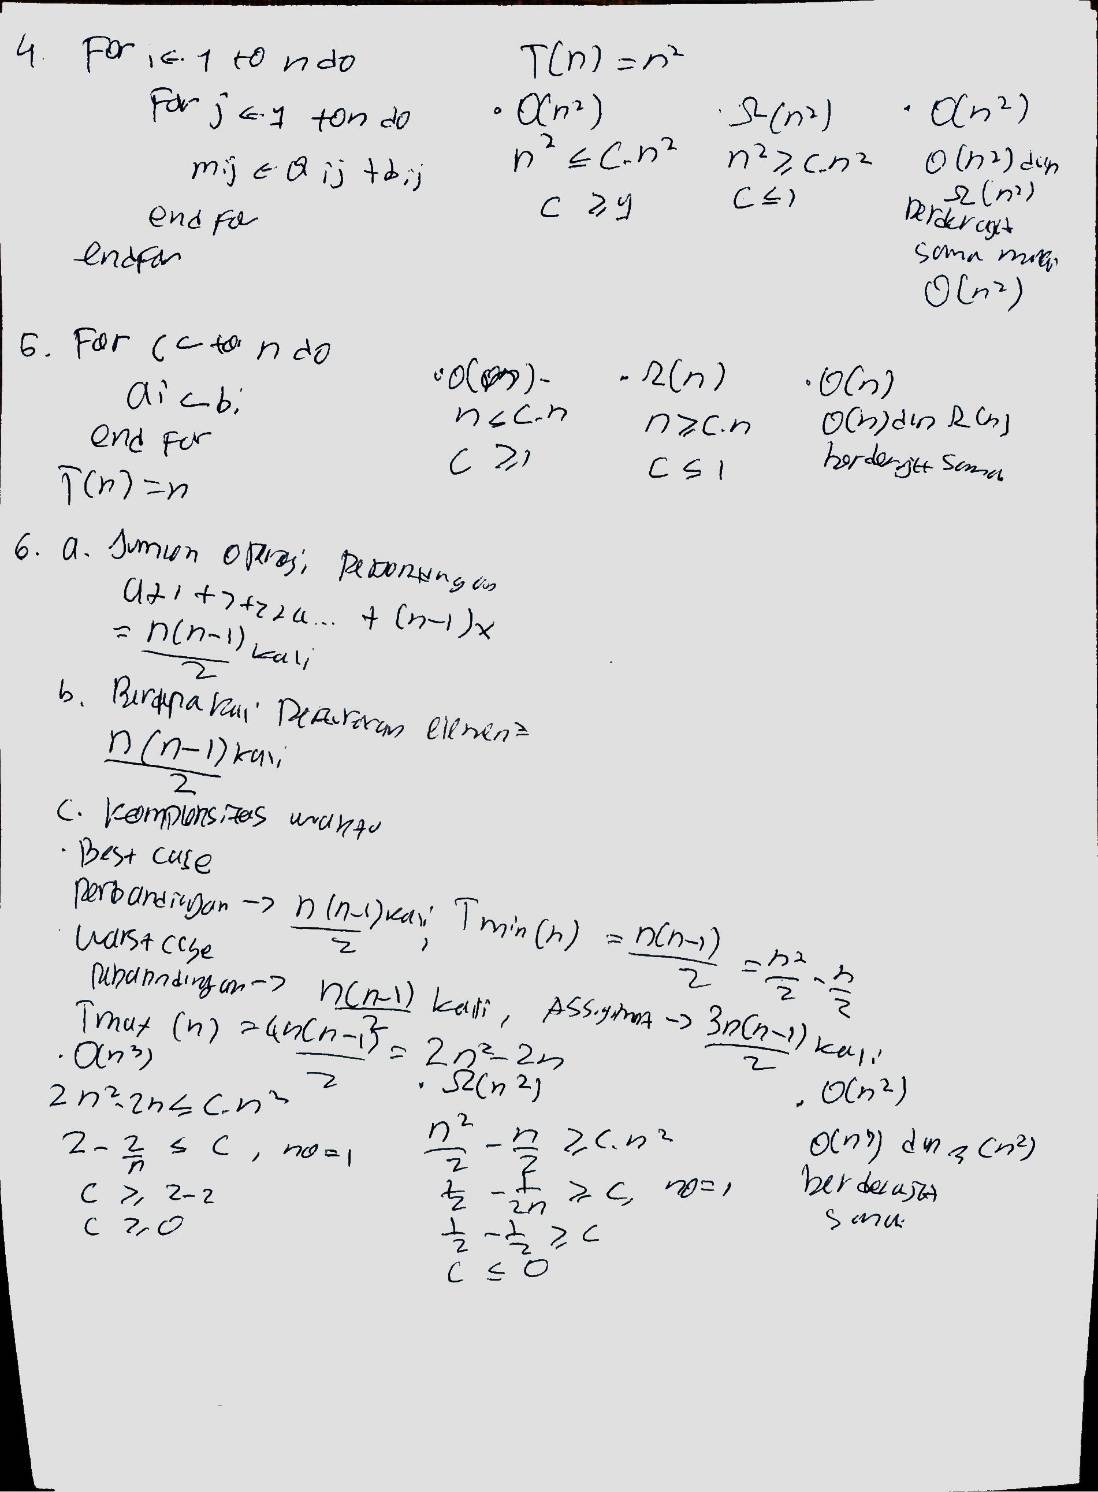 4. For i ← 1 to n do
For j ← 1 to n do
mij ← aij + bij
end For
endfor
T(n) = n²
• O(n²)
n² ≤ C.n²
C ≥ 1
• Ω(n²)
n² ≥ C.n²
C ≤ 1
• Θ(n²)
O(n²) dan
Ω(n²)
berderajat
sama maka
Θ(n²)
5. For i ← to n do
ai ← bi
end For
T(n) = n
• O(n)
n ≤ C.n
C ≥ 1
• Ω(n)
n ≥ C.n
C ≤ 1
• Θ(n)
O(n) dan Ω(n)
berderajat sama
6. a. Jumlah operasi perbandingan
+ (n-1)x
= n(n-1)/2 kali
b. Berapa kali pertukaran elemen
n(n-1)/2 kali
c. Kompleksitas waktu
• Best case
perbandingan → n(n-1)/2 kali, Tmin(n) = n(n-1)/2 = n²/2 - n/2
• Worst case
perbandingan → n(n-1)/2 kali, Assigment → 3n(n-1)/2 kali
Tmax(n) = 4n(n-1)/2 = 2n² - 2n
• O(n²)
2n² - 2n ≤ C.n²
2 - 2/n ≤ C, n0 = 1
C ≥ 2-2
C ≥ 0
• Ω(n²)
n²/2 - n/2 ≥ C.n²
1/2 - 1/2n ≥ C, n0 = 1
1/2 - 1/2 ≥ C
C ≤ 0
• Θ(n²)
O(n²) dan Ω(n²)
berderajat
sama